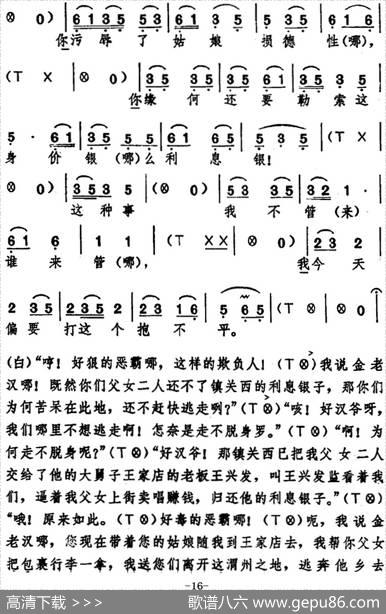 ⊗ 0) | 6 1 3 5 5 3 | 6 1 5 3 5 | 6 1 6 |
你污辱了姑娘损德性(哪),
(T X | ⊗ 0) | 3 5 3 5 | 3 5 3 5 |
你缘何还要勒索这
5 · 6 1 | 3 5 5 5 | 6 1 6 5 | 5 3 5 | (T X |
身价银(哪)么利息银!
⊗ 0) | 3 5 3 5 | (⊗ 0) | 5 3 3 5 | 3 2 1 · |
这种事我不管(来)
6 1 6 | 1 1 | (T X X | ⊗ 0) | 2 3 2 |
谁来管(哪),我今天
2 3 5 | 2 3 5 2 | 2 3 1 6 | 5 6 5 | (T ⊗ | ⊗ 0) |
偏要打这个抱不平。
(白)“哼!好狠的恶霸哪,这样的欺负人!(T⊗)我说金老
汉哪!既然你们父女二人还不了镇关西的利息银子,那你们
为何苦呆在此地,还不赶快逃走咧?”(T⊗)“咳!好汉爷呀,
我们哪里不想逃走啊!怎奈是走不脱身罗。”(T⊗)“啊!为
何走不脱身呢?”(T⊗)“好汉爷!那镇关西已把我父女二人
交给了他的大舅子王家店的老板王兴发,叫王兴发监看着我
们,逼着我父女上街卖唱赚钱,归还他的利息子。”(T⊗)
“哦!原来如此。(T⊗)好毒的恶霸哪!(T⊗)呃,我说金
老汉哪,您现在带着您的姑娘随我到王家店去,我帮你父女
把包裹行李一拿,我送您们离开这渭州之地,逃奔他乡去
-16-
高清下载 >>> 歌谱八六 www.gepu86.com